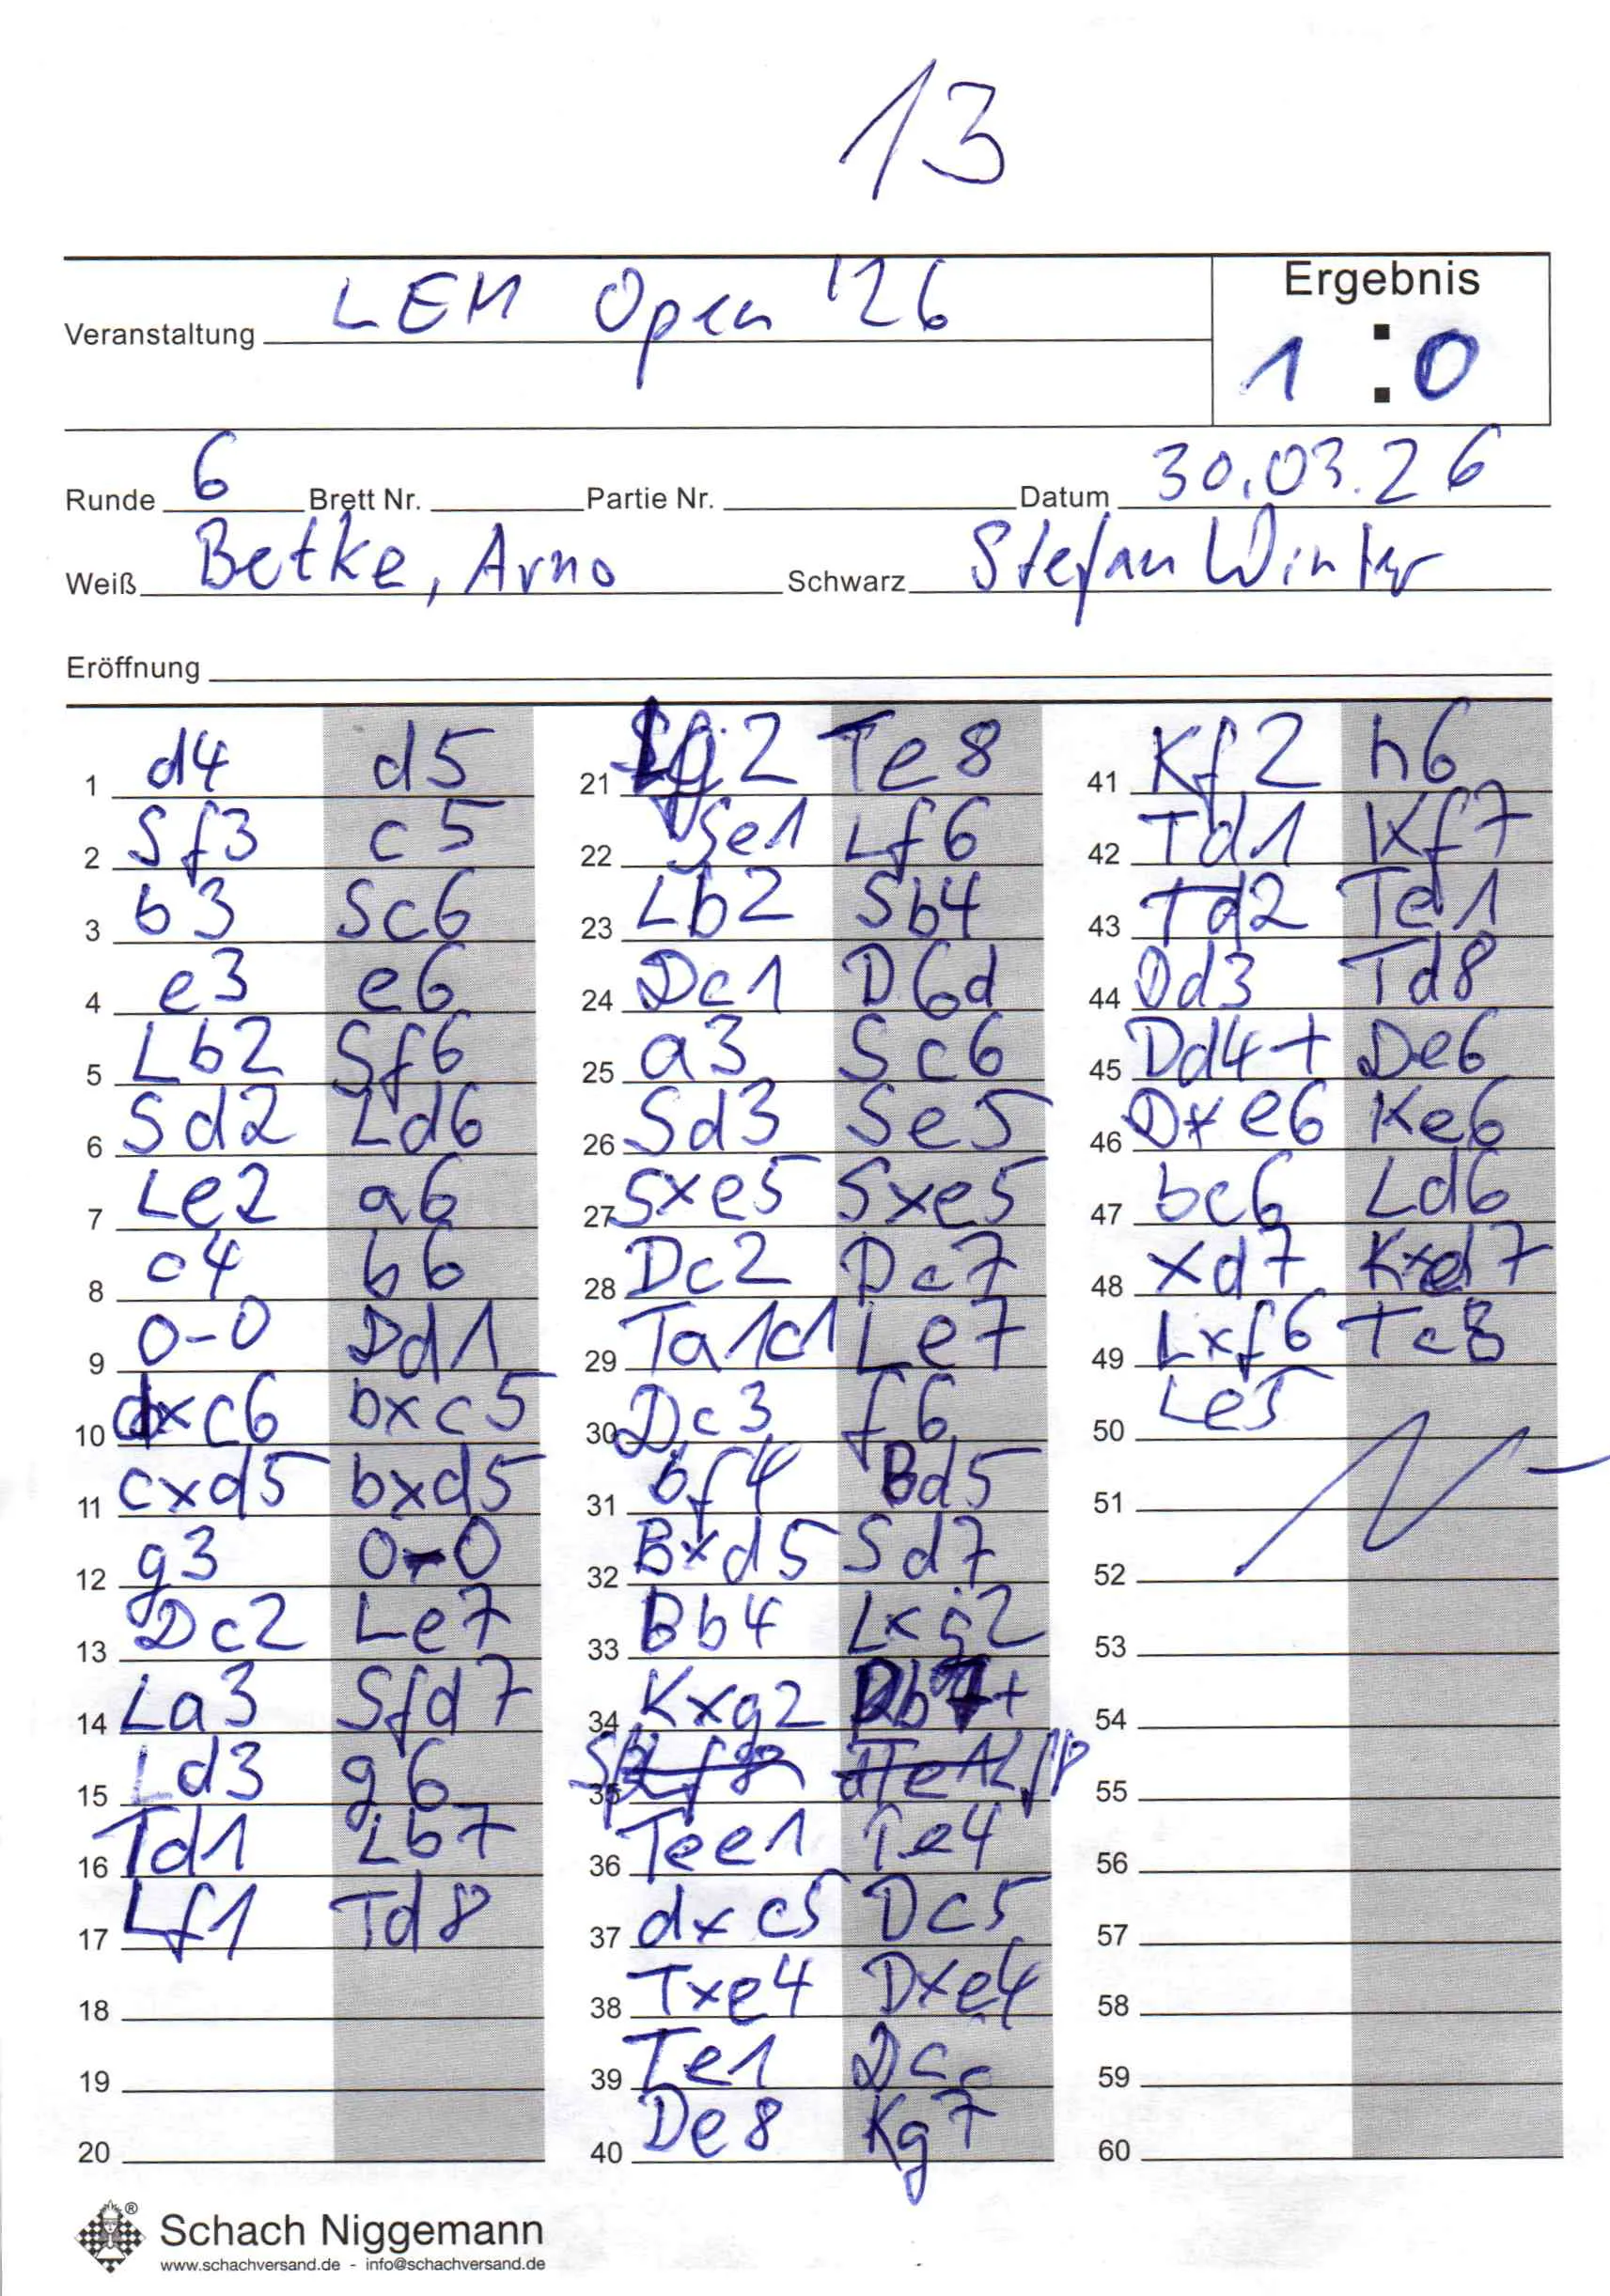 13
Veranstaltung LEM Open '26
Ergebnis
1 : 0
Runde 6 Brett Nr. Partie Nr. Datum 30.03.26
Weiß Betke, Arno Schwarz Stefan Winter
Eröffnung
1 d4 d5
2 Sf3 c5
3 b3 Sc6
4 e3 e6
5 Lb2 Sf6
6 Sd2 Ld6
7 Le2 a6
8 c4 b6
9 0-0 Dd1
10 dxc6 bxc5
11 cxd5 bxd5
12 g3 0-0
13 Dc2 Le7
14 La3 Sfd7
15 Ld3 g6
16 Td1 Lb7
17 Lf1 Td8
18
19
20
21 Lg2 Te8
22 Se1 Lf6
23 Lb2 Sb4
24 Dc1 D6d
25 a3 Sc6
26 Sd3 Se5
27 Sxe5 Sxe5
28 Dc2 Dc7
29 Ta1c1 Le7
30 Dc3 f6
31 bf4 Bd5
32 Bxd5 Sd7
33 Bb4 Lxg2
34 Kxg2 Db7+
35
36 Tee1 Te4
37 dxc5 Dc5
38 Txe4 Dxe4
39 Te1
40 De8 Kg7
41 Kf2 h6
42 Td1 Kf7
43 Td2 Te1
44 Dd3 Td8
45 Dd4+ De6
46 Dxe6 Ke6
47 bc6 Ld6
48 xd7 Kxd7
49 Lxf6 Tc8
50 Le5
51
52
53
54
55
56
57
58
59
60
Schach Niggemann
www.schachversand.de - info@schachversand.de